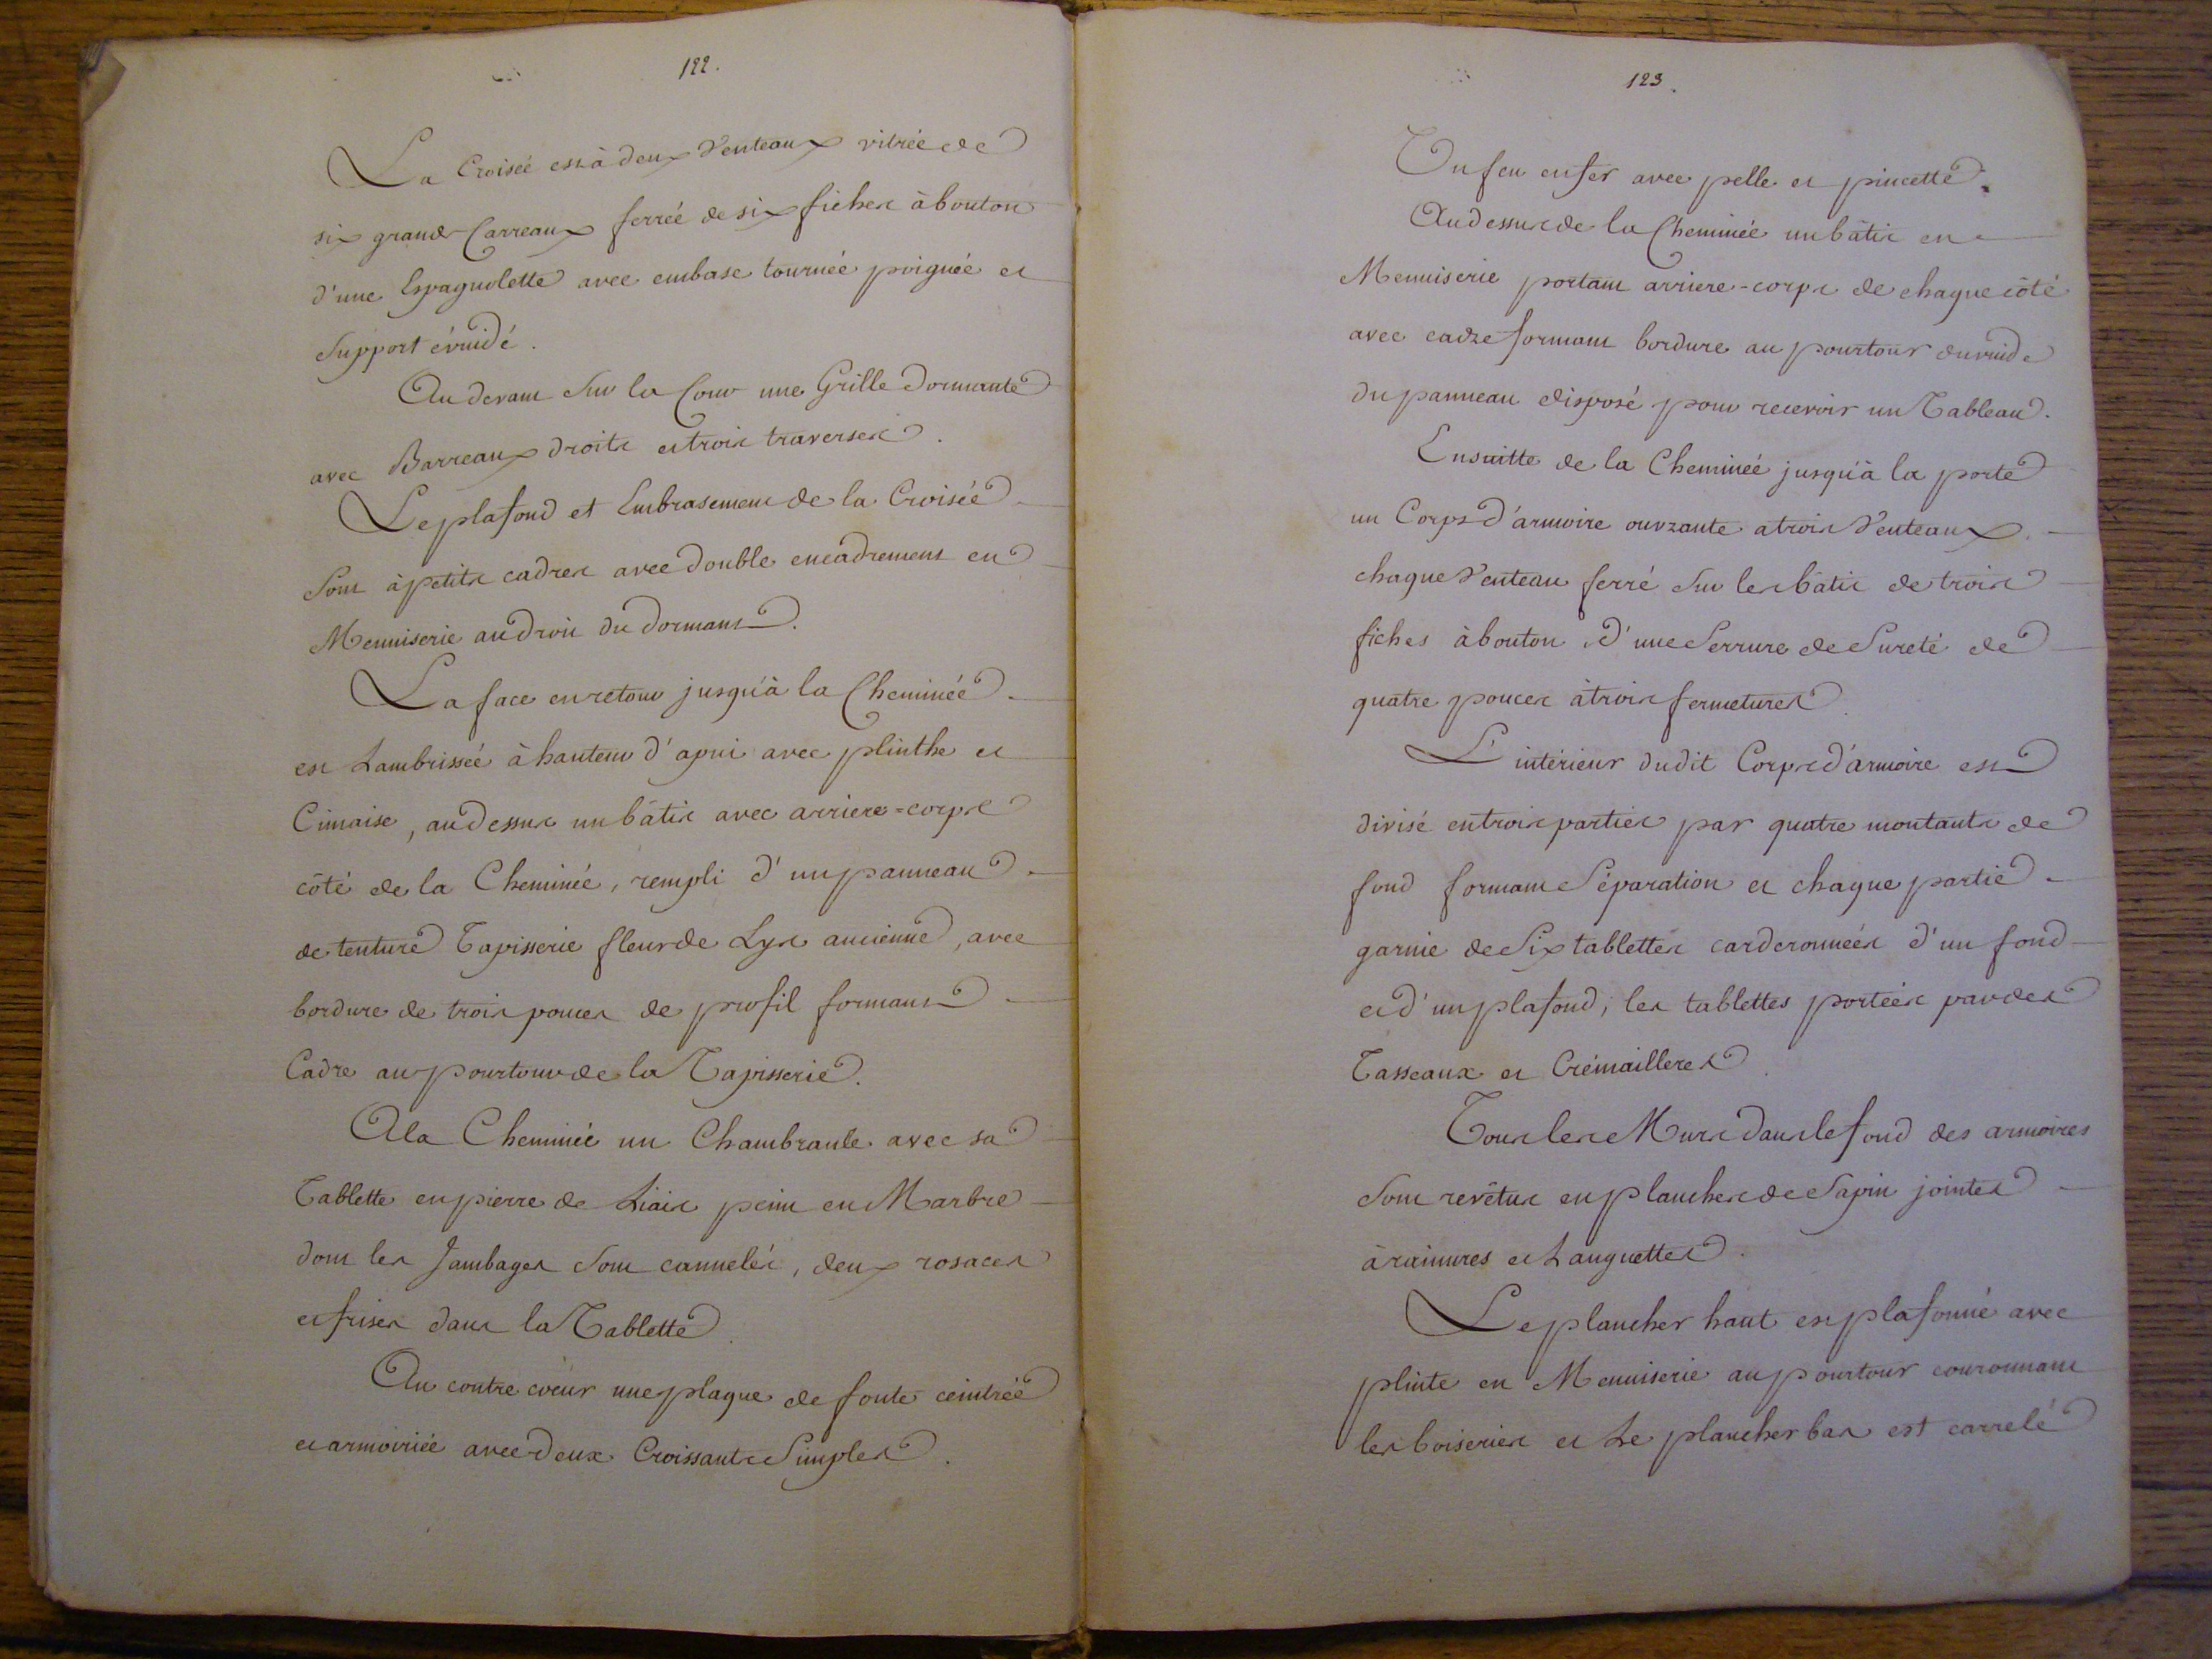 122.
La Croisée est à deux Venteaux vitrée de
six grands Carreaux ferrée de six fiches à bouton
d'une Espagnolette avec embase tournée poignée et
Support évuidé.
Au devant Sur la Cour une Grille dormante
avec Barreaux droits et trois traverses.
Le plafond et Embrasement de la Croisée
Sont à petits cadres avec double encadrement en
Menuiserie au droit du dormant.
La face en retour jusqu'à la Cheminée
est Lambrissée à hauteur d'apui avec plinthe et
Cimaise, au dessus un bâtis avec arriere=corps
côté de la Cheminée, rempli d'un panneau
de tenture Tapisserie fleur de Lys ancienne, avec
bordure de trois pouces de profil formant
Cadre au pourtour de la Tapisserie.
A la Cheminée un Chambranle avec sa
Tablette en pierre de Liais peint en Marbre
dont les Jambages Sont cannelés, deux rosaces
et frises dans la Tablette.
Au contre coeur une plaque de fonte ceintrée
et armoiriée avec deux Croissants Simples.
123.
Un feu en fer avec pelle et pincette.
Au dessus de la Cheminée un bâtis en
Menuiserie portant arriere-corps de chaque côté
avec cadre formant bordure au pourtour du vuide
du panneau disposé pour recevoir un Tableau.
Ensuitte de la Cheminée jusqu'à la porte
un Corps d'armoire ouvrante a trois Venteaux.
chaque Venteau ferré Sur les bâtis de trois
fiches à bouton d'une Serrure de Sureté de
quatre pouces à trois fermetures.
L'intérieur dudit Corps d'armoire est
divisé en trois parties par quatre montants de
fond formant Séparation et chaque partie
garnie de Six tablettes carderonnées d'un fond
et d'un plafond; les tablettes portées par des
Tasseaux et Crémailleres.
Tous les Murs dans le fond des armoires
Sont revêtus en planches de Sapin jointes
à rainures et Languettes.
Le plancher haut est plafonné avec
plinte en Menuiserie au pourtour couronnant
les boiseries et Le plancher bas est carrelé